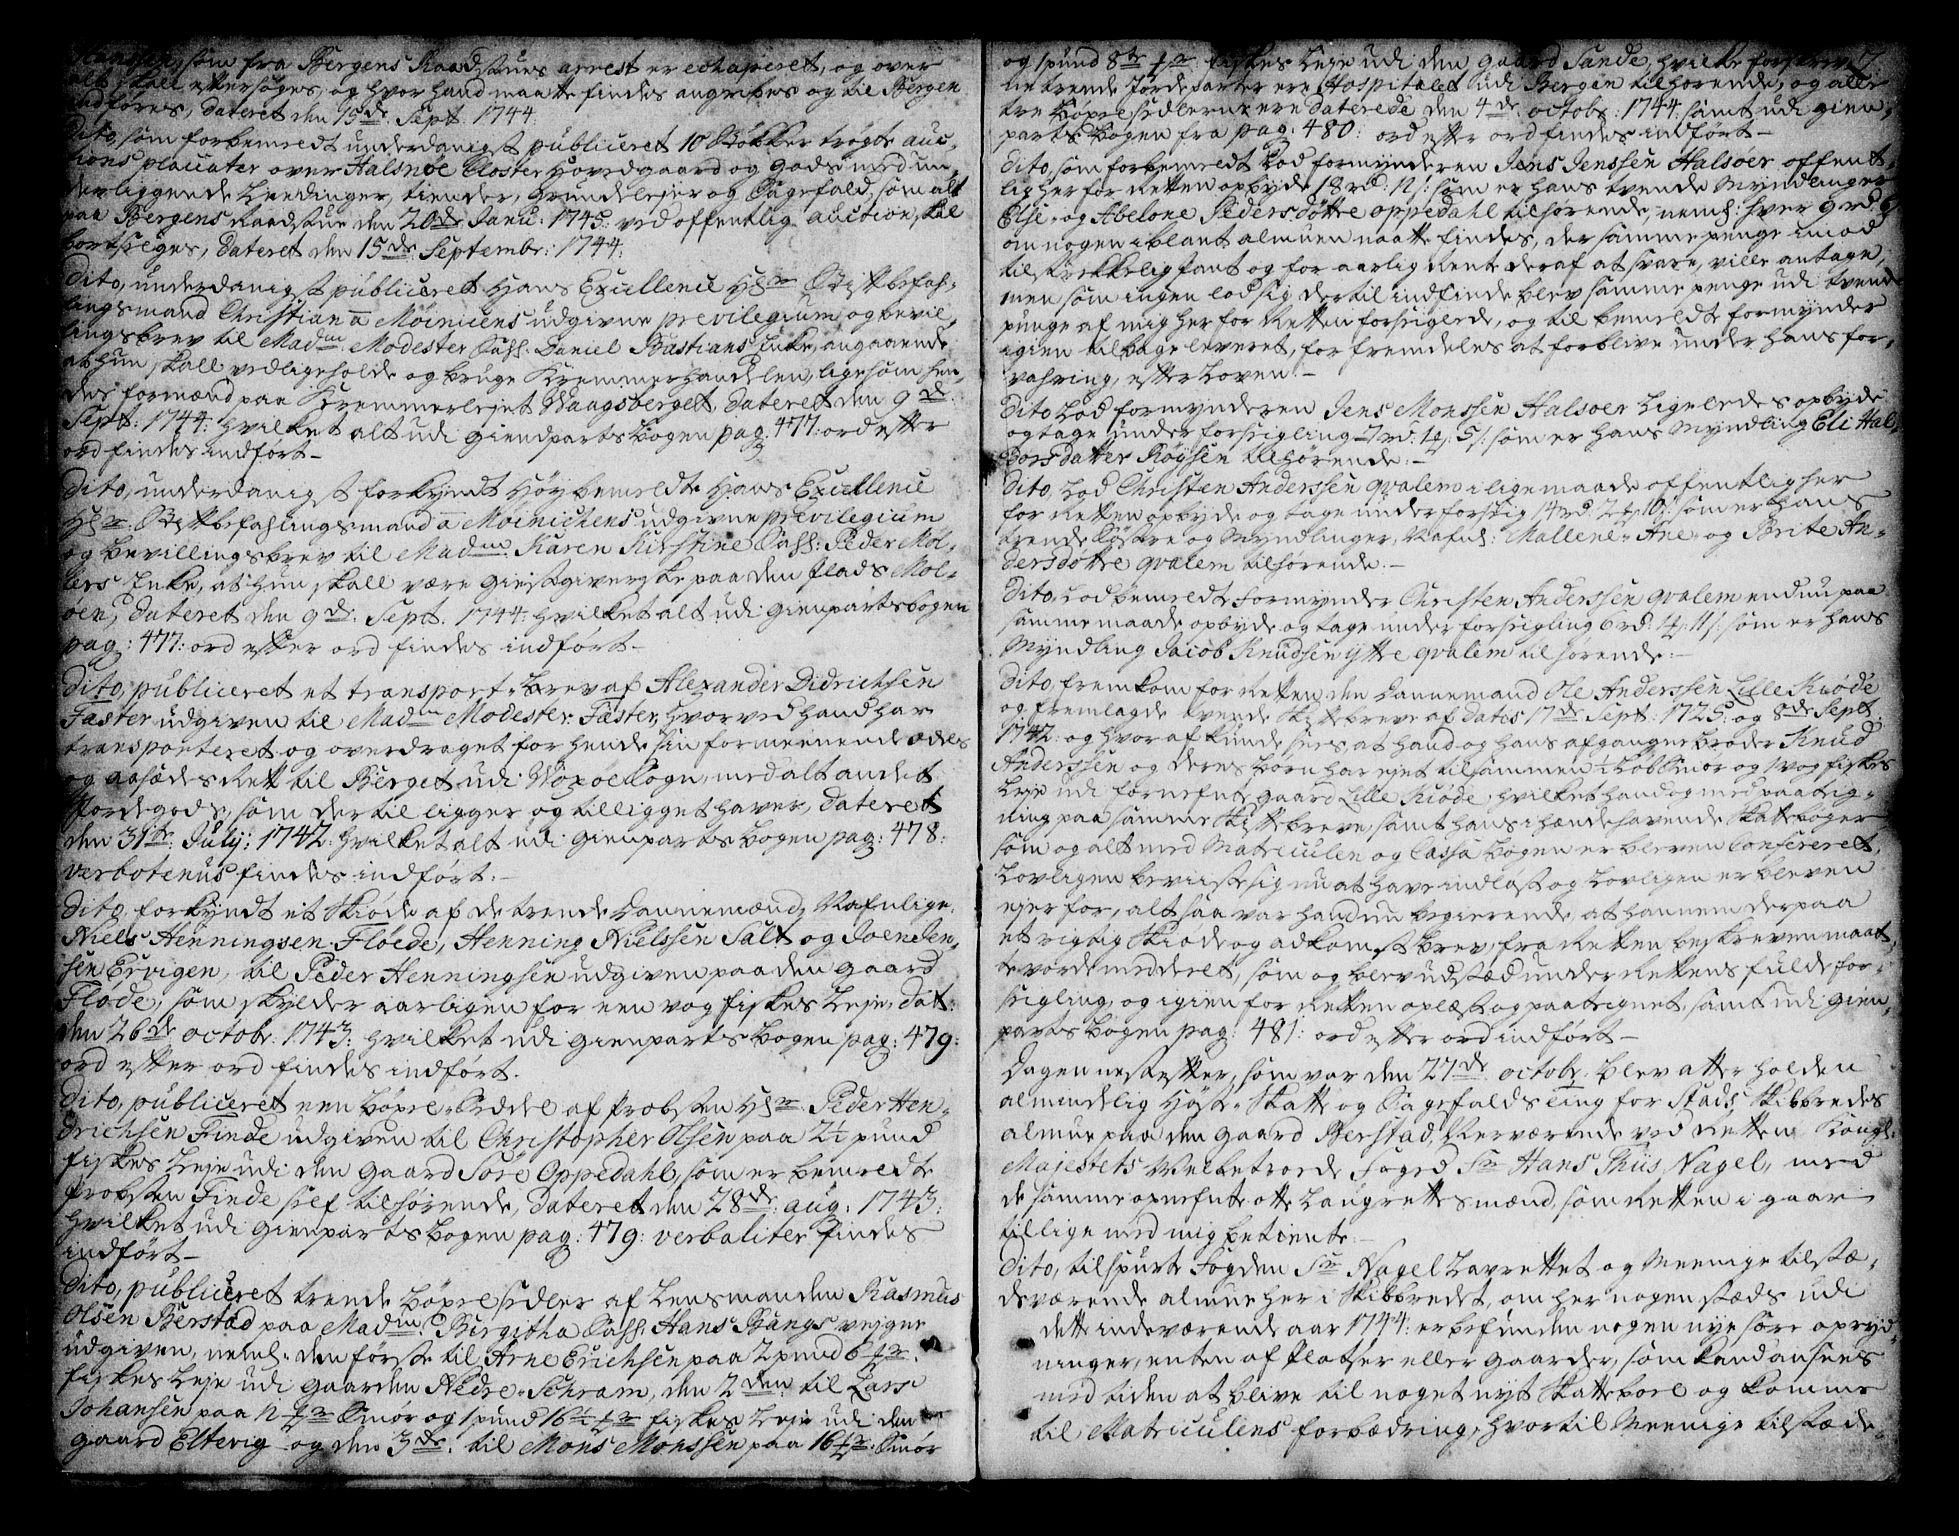 Hanssen, som fra Bergens Raadstues arrest er echaperet, og over
alt skall eftersøges, og hvor hand maatte findes angribes og til Bergen
indføres, dateret den 15de Sept. 1744.
Dito, som forbemeldt underdanigst publiceret 10 Støkker trøgte auc-
tions placcater over Halsnøe Closter Hovedgaard og gods med un-
derliggende Leedinger, tiender, grundeleje og Sagefald, som alt
paa Bergens Raadstue den 20de Janu: 1745 ved offentlig auction skal
bortsælges, dateret den 15de Septembr: 1744.
Dito, underdanigst publiceret Hans Excellence Hr Stiftbefah-
lingsmand Christian a Møinicens udgivne previlegium og bevil-
lingsbrev til Madm Modester Sahl. Daniel Bastians Enke, angaaende
at hun skall vedligeholde og bruge Kremmerhandelen, ligesom hen-
des formænd paa Kremmerlejet Vaagsberget, dateret den 9de
Sept. 1744. hvilket alt udi giendpartsbogen pag: 477: ord efter
ord findes indført -
Dito, underdanigst forkyndt Høybemeldte Hans Excellence
Hr Stiftbefahlingsmand a Møinichens udgivne previlegium
og bevillingsbrev til Madm Karen Kirstine Sahl: Peder Mol-
lers Enke, at hun skall være giestgiverske paa den plads Mol-
øen, dateret den 9de Sept. 1744. hvilket alt udi gienpartsbogen
pag: 477: ord efter ord findes indført -
Dito, publiceret et transport-brev af Alexander Didrichsen
Fæster udgiven til Madm Modester Fæster, hvorved hand har
transporteret og overdraget for hende sin formeenende odels
og aasædes Rett til Berget udi Woxøe Sogn, med alt andet
Jordegods, som dertil ligger og tilligget haver, dateret
den 31te July: 1742. hvilket alt udi gienparts bogen pag: 478:
verbotenus findes indført. -
Dito, forkyndt et Skiøde af de trende Dannemænd, Nafnlige:
Niels Henningsen Fløede, Henning Nielssen Salt og Joen Jen-
sen Ervigen, til Peder Henningsen udgiven paa den gaard
Fløde, som skylder aarligen for een vog fiskes Leje, dat:
den 26de octobr. 1743: hvilket udi gienparts bogen pag: 479:
ord efter ord findes indført.
Dito, publiceret een bøxel-Seddel af Probsten Hr Peder Hen-
drichsen Finde udgiven til Christopher Olsen paa 2½ pund
fiskes Leje udi den gaard Søre Oppedahl, som er bemeldte
Probsten Finde self tilhørende, dateret den 28de aug: 1743:
hvilket udi gienparts bogen pag: 479: verbaliter findes
indført -
Dito, publiceret trende bøxelsedler af Lensmanden Rasmus
Olsen Berstad paa Madm Birgitha Sahl. Hans Bangs vejgne
udgiven, neml. den første til Arne Erichsen paa 2 pund 6
fiskes Leje udi gaarden Nedre-Schram, den 2den til Lars
Johansen paa 12 Smør og 1 pund 16½ fiskes Leje udi den
gaard Eltevig og den 3de til Mons Monssen paa 16 Smør
og 1 pund 8 fiskes Leje udi den gaard Sande, hvilke forskrev-
ne trende Jordeparter ere Hospitalet udi Bergen tilhørende, og alle
tre bøxelsedlerne ere daterede den 4de octobr: 1744 samt udi gien-
parts bogen fra pag: 480: ord efter ord findes indført -
Dito, som forbemeldt Lod formynderen Jens Jenssen Halsøer offent-
lig her for Retten opbyde 18 rd. 12 s: som er hans tvende Myndlinger
Else og Abelone Pedersdøttre oppedahl tilhørende, neml: hver 9 rd. 6
om nogen iblant almuen maatte findes, der samme penge imod
tilstrekkelig Pant og for aarlig Rente deraf at svare, ville antage,
men som ingen lod sig dertil indfinde blev samme penge udi tvende
punge af mig her for Retten forseiglede, og til bemeldte formynder
igien tilbage leveret, for fremdeles at forblive under hans for-
vahring, efter Loven. -
Dito Lod formynderen Jens Monssen Halsøer Ligeledes opbyde
og tage under forseigling 7 rd. 14 5 s. som er hans Myndling Eli Hal-
dorsdatter Røysen tilhørende. -
Dito, Lod Christen Anderssen qvalem i lige maade offentlig her
for Retten opbyde og tage under forseig 14 rd. 2 10 s. som er hans
trende Søstre og Myndlinger, Nafnl: Mallene- Ane- og Brite An-
dersdøttre qvalem tilhørende. -
Dito, Lod bemeldte formynder Christen Anderssen qvalem enduu paa
samme maade opbyde og tage under forseigling 6 rd. 14 11 s. som er hans
Myndling Jacob Knudsen ytre qvalem tilhørende. -
Dito, fremkom for Retten den Dannemand Ole Anderssen Lille Kiøde
og fremlagde tvende Skiftebreve af datis 17de Sept: 1725. og 8de Sept.
1742. og hvoraf kunde sees, at hand og hans afgangne broder Knud
Anderssen og deres børn har ejet tilsammen ½ Løb Smør og 1 vog fiskes
Leje udi fornefnte gaard Lille Kiøde, hvilket hand og med paateig-
ning paa samme Skiftebreve, samt hans ihændehavende Skattebøger
som og alt med Matriculen og Cassa bogen er bleven Confereret,
Lovligen beviiste sig nu at have indløst og Lovligen er bleven
ejer for, altsaa var hand nu begierende, at hannem derpaa
et rigtig Skiøde og adkomst brev, fra Retten beskreven maat-
te vorde meddeelt, som og blev udstæd under Rettens fulde for-
seigling, og igien for Retten oplæst og paateignet, samt udi gien-
parts bogen pag: 481: ord efter ord indført -
Dagen nest efter, som var den 27de octobr. blev atter holden
almindelig Høste- Skatte og Sagefalds ting for Stads Skibbredes
almue paa den gaard Berstad, Nerværende ved Retten Kongl:
Majestets Velbetroede Foged Sr Hans Thiis Nagel, med
de samme opnefnte otte Laugrettesmænd, som Retten i gaar
tillige med mig betiente. -
Dito, tilspurte Fogden Sr Nagel Lavrettet og Meenige tilstæ-
deværende almue her i Skibbredet, om her nogenstæds udi
dette indeværende aar 1744: er befunden nogen nye søre opryd-
ninger, enten af Platser eller gaarder, som kand ansees
med tiden at blive til noget nyt Skattebøxel og komme
til Matriculens forbædring, hvortil Meenige tilstæde-